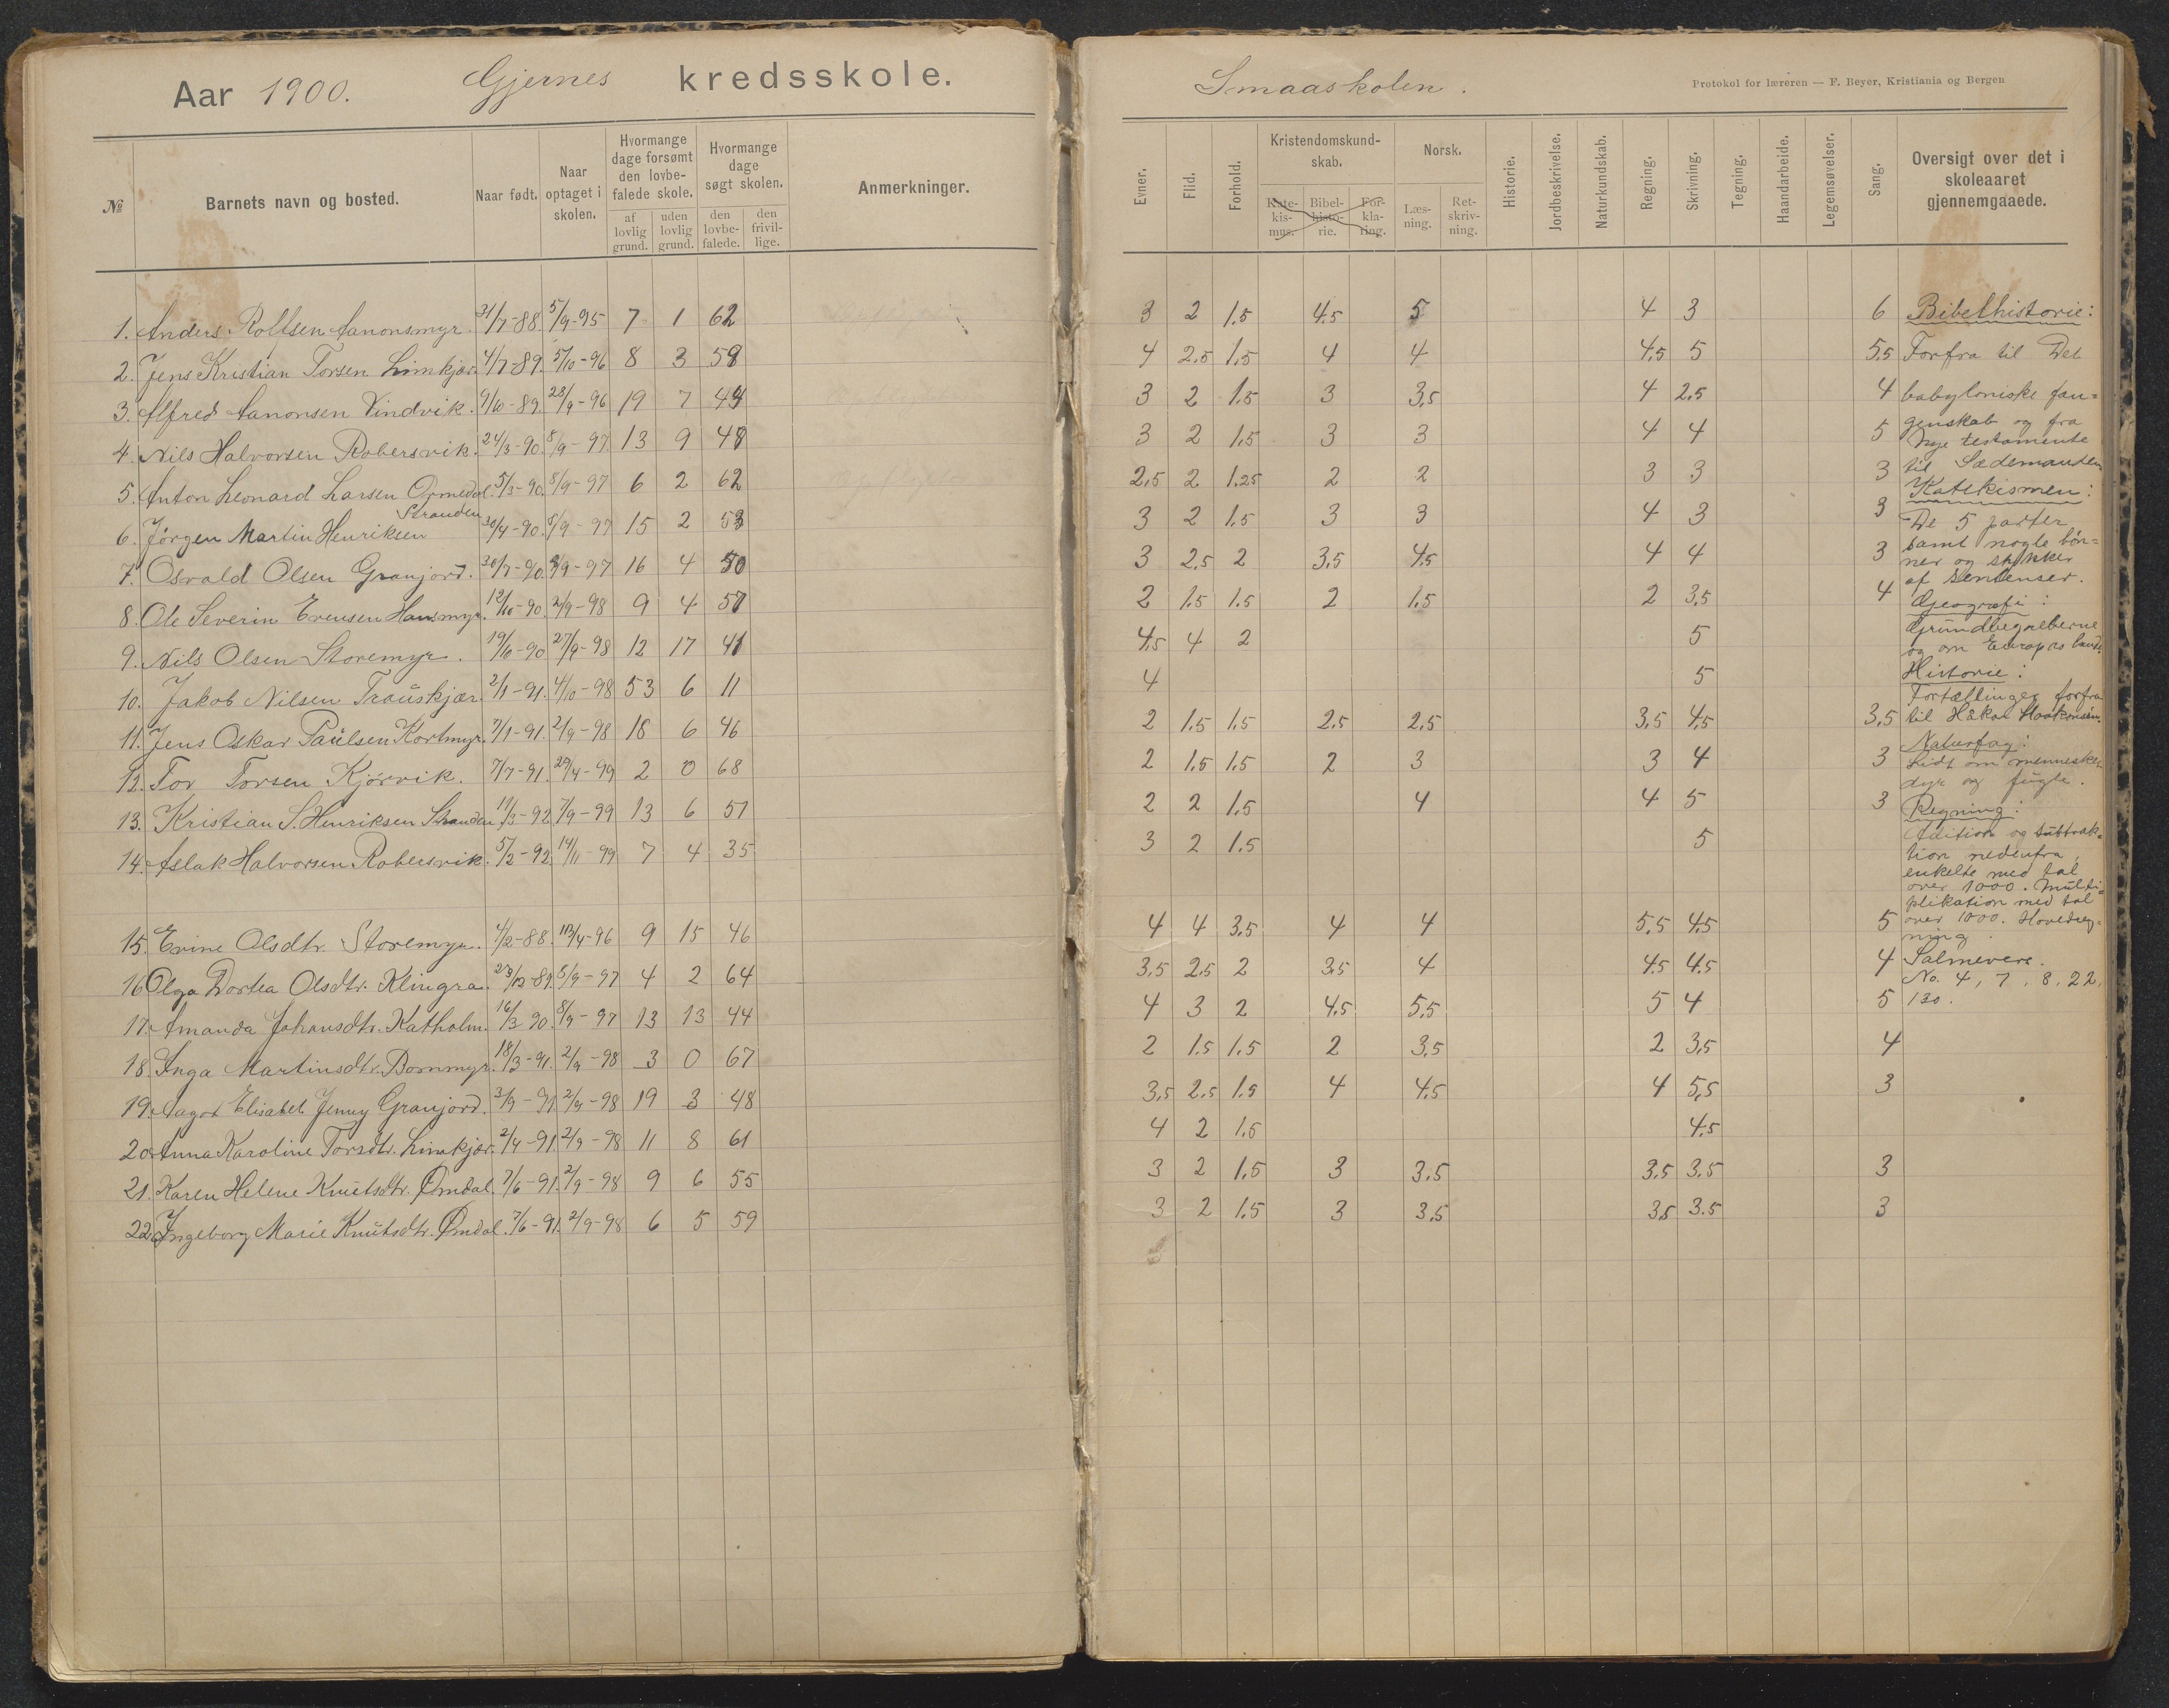 Aar 1900. Gjernes kredsskole.
№ Barnets navn og bosted. Naar født. Naar optaget i skolen. Hvormange dage forsømt den lovbefalede skole. af lovlig grund. uden lovlig grund. Hvormange dage søgt skolen. den lovbefalede. den frivillige. Anmerkninger.
1. Anders Rolfsen Aanonsmyr. 31/7-88. 5/9-95 7 1 62
2. Jens Kristian Torsen Limkjær. 4/7-89. 5/10-96 8 3 59
3. Alfred Aanonsen Vindvik. 9/10-89. 28/9-96 19 7 49
4. Nils Halvorsen Robersvik. 24/3-90. 8/9-97. 13 9 48
5. Anton Leonard Larsen Ormedal. 5/3-90. 8/9-97 6 2 62
6. Jørgen Martin Henriksen Stranden 30/4-90. 8/9-97 15 2 53
7. Osvald Olsen Granjord. 30/7-90. 8/9-97 16 4 50
8. Ole Severin Evensen Hansmyr. 12/10-90. 2/9-98 9 4 57
9. Nils Olsen Storemyr. 19/10-90 27/9-98 12 17 41
10. Jakob Nilsen Trauskjær. 2/1-91. 4/10-98 53 6 11
11. Jens Oskar Paulsen Kortmyr. 7/1-91. 2/9-98 18 6 46
12. Tor Torsen Kjørvik. 7/7-91. 29/4-99 2 0 68
13. Kristian S. Henriksen Stranden 11/3-92. 7/9-99 13 6 57
14. Aslak Halvorsen Robersvik. 5/2-92. 14/11-99 7 4 35
15. Evine Olsdtr. Storemyr. 4/2-88. 13/4-96 9 15 46
16 Olga Dortea Olsdtr. Klingra. 23/12-89. 8/9-97 4 2 64
17. Amanda Johansdtr. Katholm. 16/3 90. 8/9-97 13 13 44
18. Inga Martinsdtr. Bommyr. 18/3-91. 2/9-98 3 0 67
19. Aagot Elisabet Jenny Granjord. 3/9-91 2/9-98 19 3 48
20. Anna Karoline Torsdtr. Limkjær. 2/4-91. 2/9-98 11 8 61
21. Karen Helene Knutsdtr. Omdal. 7/6-91. 2/9-98 9 6 55
22. Ingeborg Marie Knutsdtr. Omdal. 7/6-91. 2/9-98 6 5 59
Smaaskolen.
Protokol for læreren — F. Beyer, Kristiania og Bergen
Evner. Flid. Forhold. Kristendomskundskab. Katekismus. Bibelhistorie. Forklaring. Norsk. Læsning. Retskrivning. Historie. Jordbeskrivelse. Naturkundskab. Regning. Skrivning. Tegning. Haandarbeide. Legemsøvelser. Sang. Oversigt over det i skoleaaret gjennemgaaede.
3 2 1.5 4.5 5 4 3 6
4 2.5 1.5 4 4 4.5 5 5.5
3 2 1.5 3 3.5 4 2.5 4
3 2 1.5 3 3 4 4 5
2.5 2 1.25 2 2 3 3 3
3 2 1.5 3 3 4 3 3
3 2.5 2 3.5 4.5 4 4 3
2 1.5 1.5 2 1.5 2 3.5 4
4.5 4 2 5
4 5
2 1.5 1.5 2.5 2.5 3.5 4.5 3.5
2 1.5 1.5 2 3 3 4 3
2 2 1.5 4 4 5 3
3 2 1.5 5
4 4 3.5 4 4 5.5 4.5 5
3.5 2.5 2 3.5 4 4.5 4.5 4
4 3 2 4.5 5.5 5 4 5
2 1.5 1.5 2 3.5 2 3.5 4
3.5 2.5 1.5 4 4.5 4 5.5 3
4 2 1.5 4.5
3 2 1.5 3 3.5 3.5 3.5 3
3 2 1.5 3 3.5 3.5 3.5 3
Bibelhistorie:
Forfra til Det
babyloniske fan=
genskab og fra
Nye testamente
til Sædemanden
Katekismen:
De 5 parter
samt nogle bøn=
ner og stykker
af sentenser.
Geografi:
Grundbegreberne
og om Europas lande.
Historie:
Fortællinger forfra
til Håkon Haakonsøn.
Naturfag:
Lidt om mennesket,
dyr og fugle.
Regning:
Adition og subtrak=
tion nedenfra,
enkelte med tal
over 1000. Multi=
plikation med tal
over 1000. Hovedreg=
ning.
Salmevers.
No. 4, 7, 8, 22,
130.